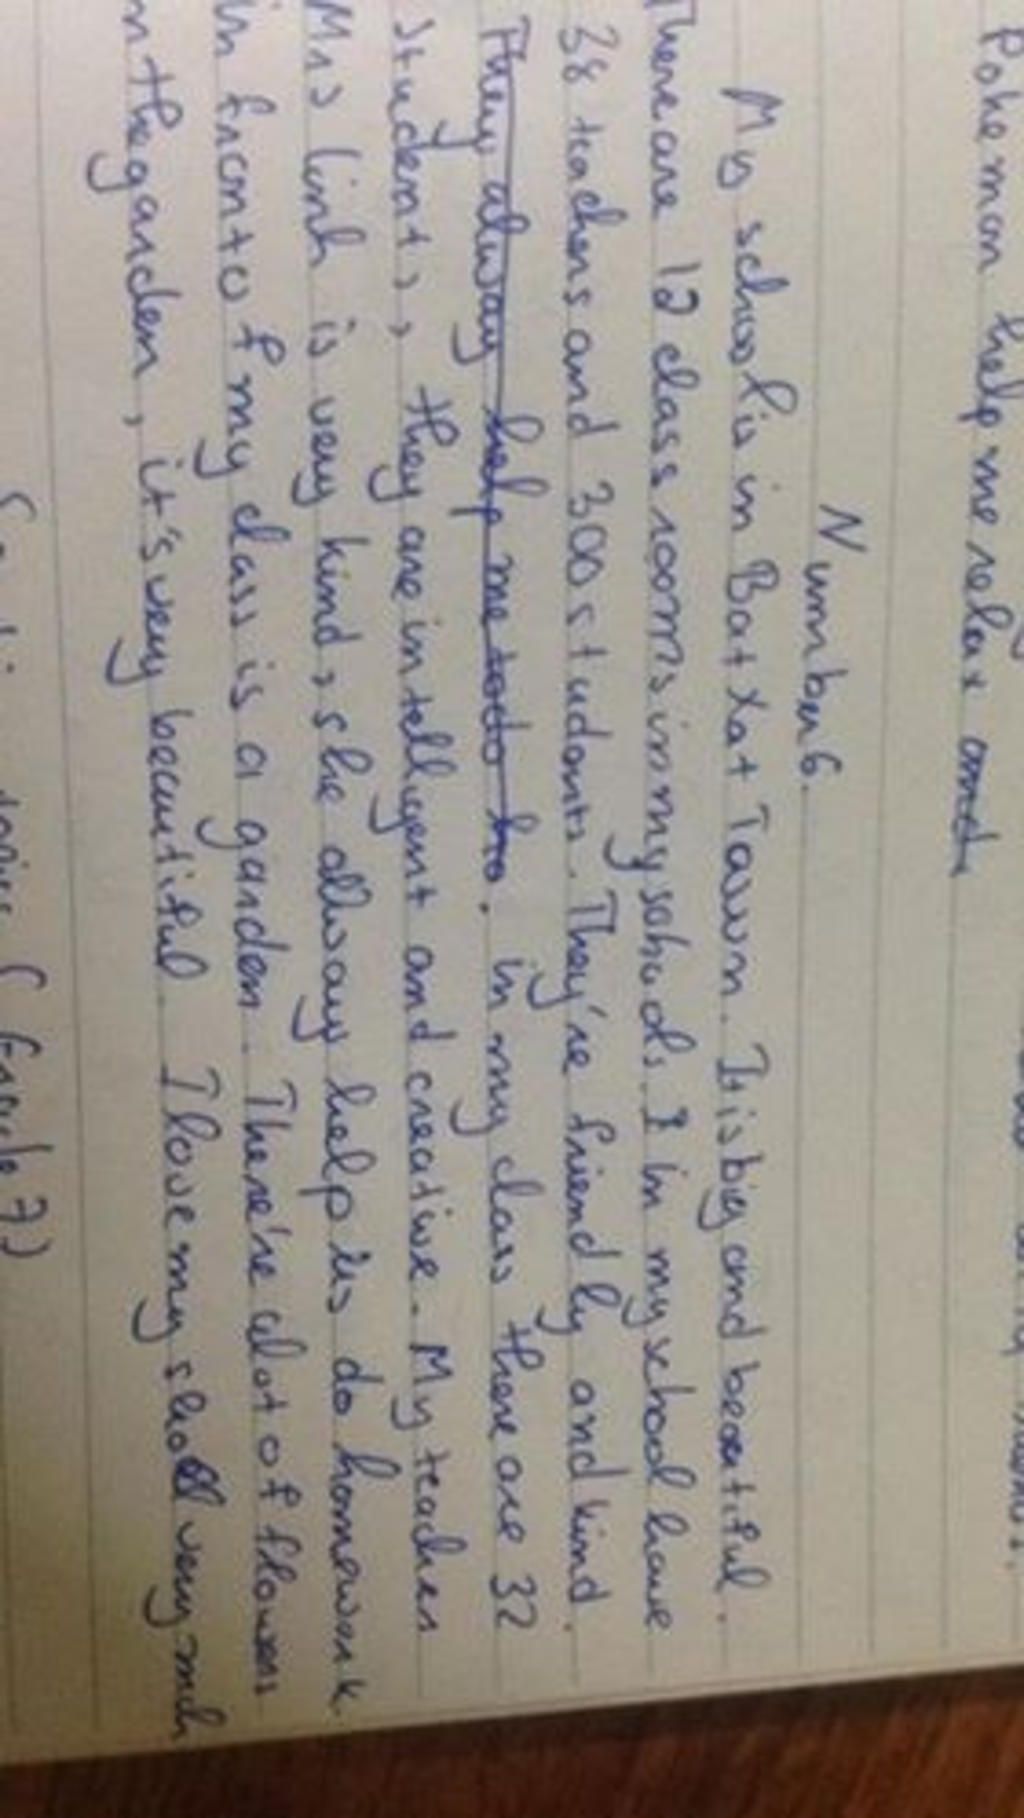 Pokemon help me relax and
Number 6.
My school is in Bat Xat Town. It is big and beautiful.
There are 12 class rooms in my schools. I in my school have
38 teachers and 300 students. They're friendly and kind.
They alway help me to do ho. in my class there are 32
students, they are intelligent and creative. My teacher
Mrs Linh is very kind, she allway help us do homework
in front of my class is a garden. There're alot of flowers
in the garden, it's very beautiful. I love my shool very much